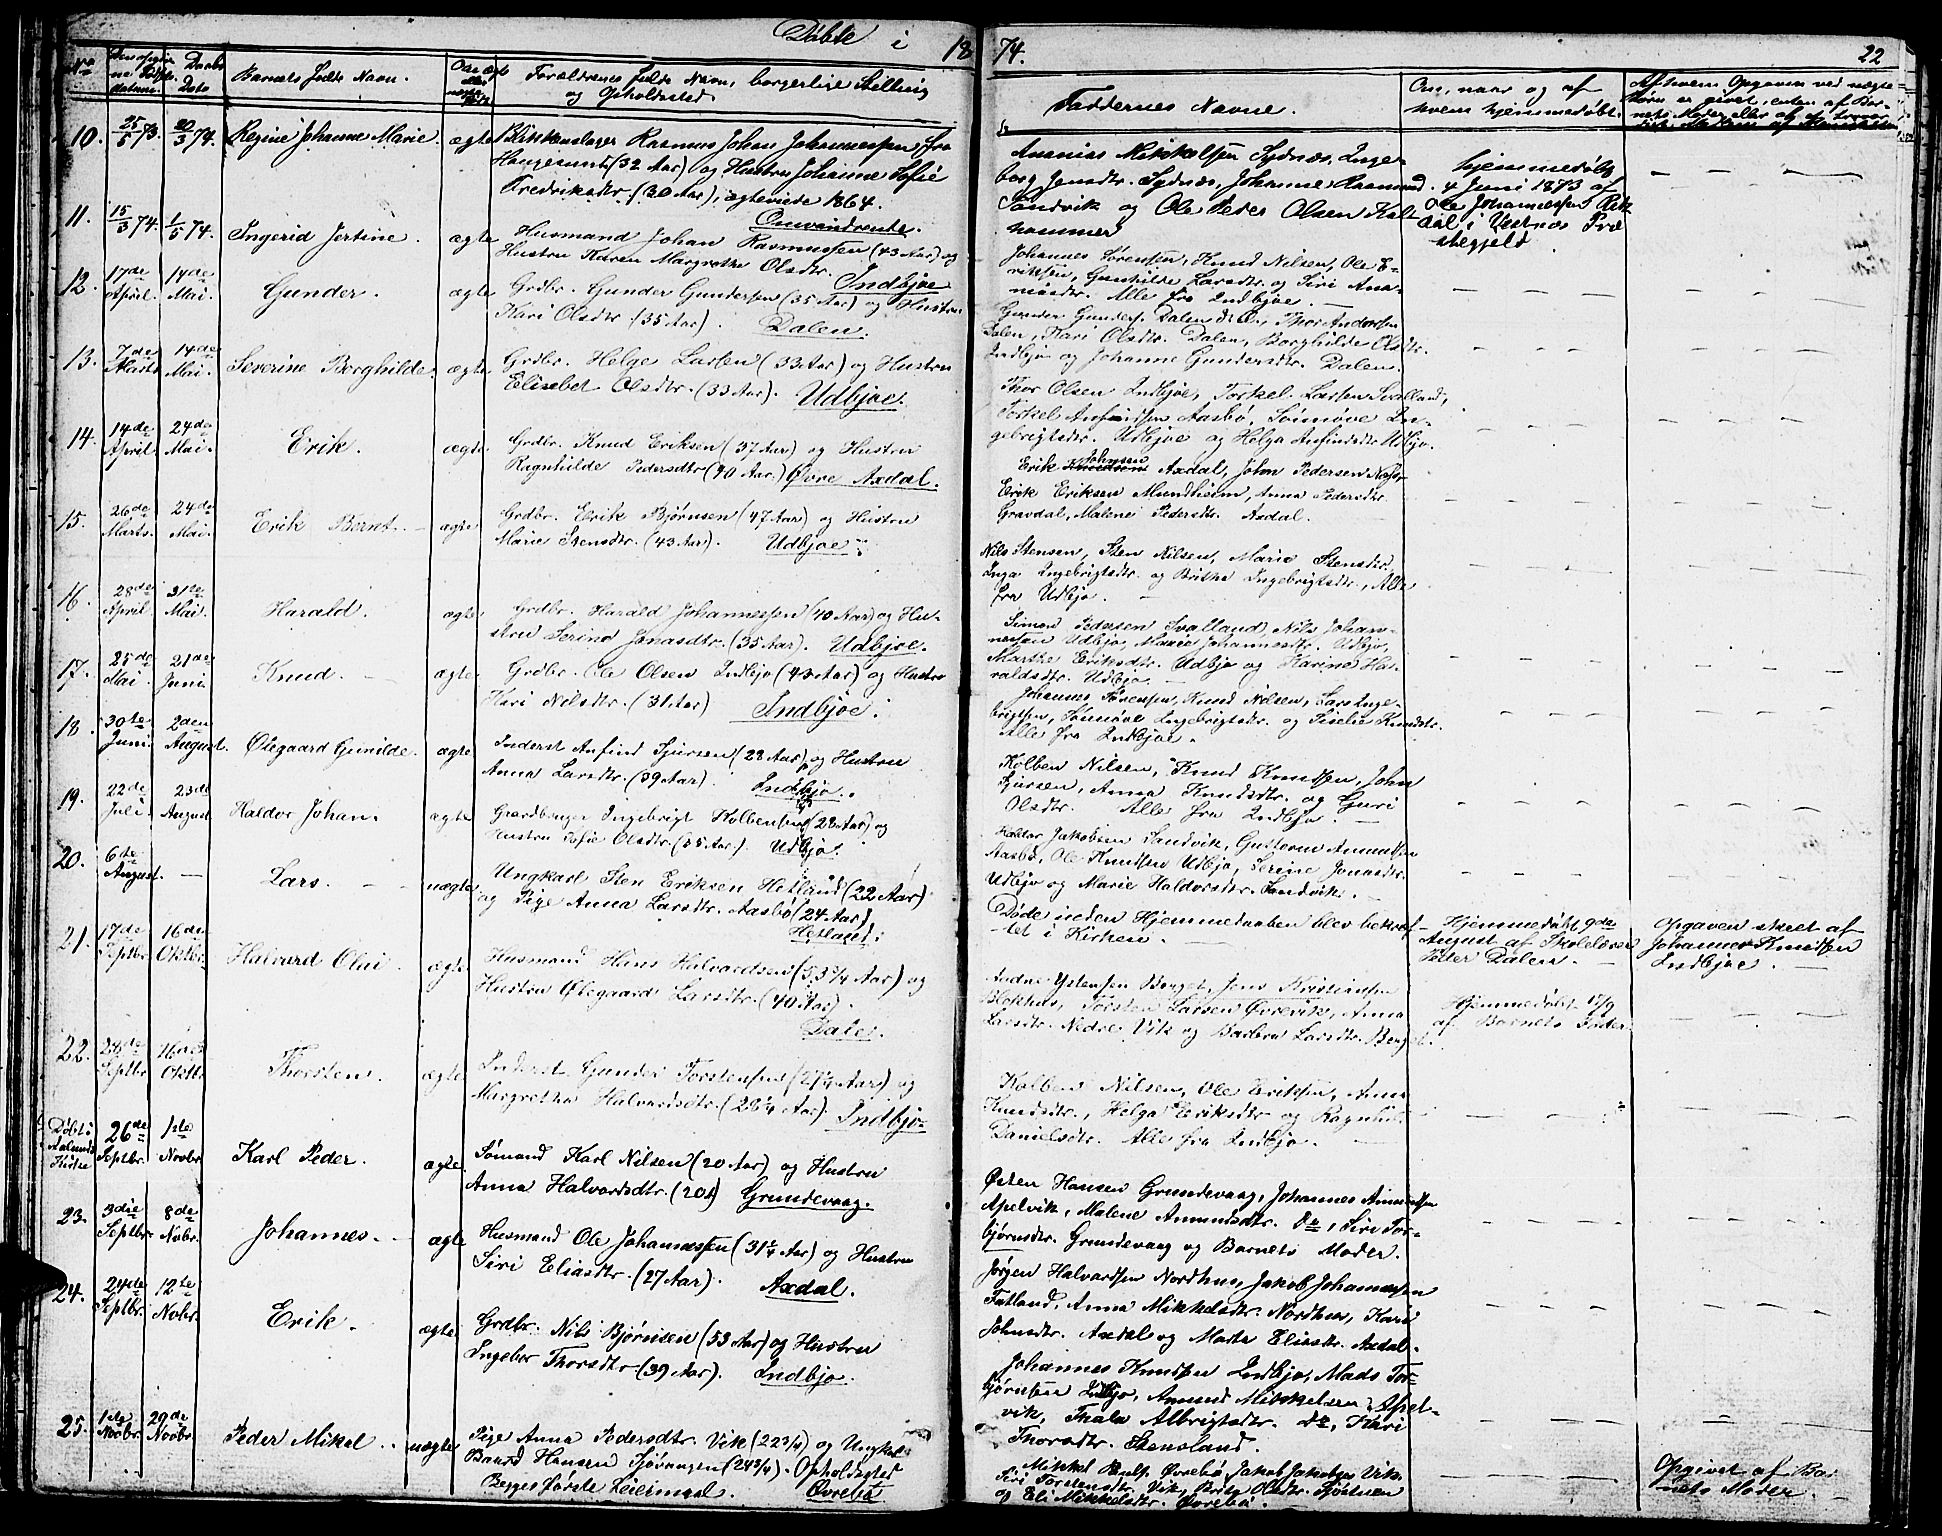 Døbte i 1874.
22
No
Daabs Dato
Barnets fulde Navn.
Forældrenes fulde Navn, borgerlige Stilling
og Opholdssted
Faddernes Navne.
Om, naar og af
hvem hjemmedøbt.
10. 25/5 73. 20/3 74. Regine Johanne Marie. ægte Blikkenslager Rasmus Johan Johannessen, fra
Haugesund (32 Aar) og Hustru Johanne Sofie
Fredriksdtr. (30 Aar), ægteviede 1864.
Omvandrente.
Ananias Mikkelsen Sydnæs, Inge-
borg Jensdtr. Sydnæs, Johanne Rasmusd.
Sandvik og Ole Peder Olsen Kal-
hammer
Hjemmedøbt
4 Juni 1873 af
Ole Johannessen
i Vestnes Præ
stegjeld.
11. 15/3 74. 1/5 74. Ingerid Jertine. ægte Husmand Johan Rasmussen (43 Aar) og
Hustru Karen Margrethe Olsdtr. Indbjoe
Johannes Sørensen, Knud Nilsen, Ole E-
riksen, Gunhilde Larsdtr. og Siri Ana-
niasdr. Alle fra Indbjoe.
12. 17de April. 14de Mai. Gunder. ægte Grdbr. Gunder Gundersen (35 Aar) og Hustru
Kari Olsdtr. (35 Aar). Dalen.
Gunder Gunders. Dalen, Thor Andersen
Dalen, Kari Olsdtr. Dalen, Borghilde Olsdtr.
Indbjo og Johanne Gundersdtr. Dalen.
13. 7de Marts 14de Mai. Severine Borghilde. ægte Grdbr. Helge Larsen (33 Aar) og Hustru
Elisabet Olsdtr. (33 Aar). Udbjoe.
Thor Olsen Indbjoe, Torkel Larsen Svalland,
Torkel Anfindsen Aasbø, Sønnøve In-
gebrigtsdtr. Udbjoe og Helga Anfindsdtr. Udbjo.
14. 14de April. 24de Mai. Erik. ægte. Grdbr. Knud Eriksen (37 Aar) og Hustru
Ragnhilde Pedersdtr. (40 Aar.) Øvre Axdal.
Johnsen
Erik Axdal, John Pedersen Næs,
Erik Eriksen Mundheim, Anna Pedersdtr.
Gravdal, Malene Pedersdtr. Axdal.
15. 26de Marts. 24de Mai. Erik Bernt. ægte Grdbr. Erik Bjørnsen (47 Aar) og Hustru
Marie Stensdtr. (43 Aar). Udbjoe.
Nils Stensen, Sten Nilsen, Marie Stensdtr.
Inga Ingebrigtsdtr. og Brithe Ingebrigtsdtr., Alle
fra Udbjo.
16. 28de April 31te Mai. Harald. ægte. Grdbr. Harald Johannessen (40 Aar) og Hu-
stru Serine Jonasdtr. (35 Aar). Udbjoe.
Simon Pedersen Svalland, Nils Johan-
nessen Udbjo, Marie Johannesdtr. Udbjo,
Marthe Eriksdtr. Udbjo og Karine Ha-
raldsdtr. Udbjo.
17. 25de Mai. 21de Juni. Knud. ægte. Grdbr. Ole Olsen Indbjo (43 Aar) og Hustru
Kari Nilsdtr. (31 Aar) Indbjoe.
Johannes Sørensen, Knud Nilsen, Lars Inge-
brigtsen, Sønnøve Ingebrigtsdtr. og Knudsdtr.
Alle fra Indbjoe.
18. 30te Juni. 2den August. Ølegaard Gunilde. ægte Inderst Anfind Sjursen (28 Aar) og Hustru
Anna Larsdtr. (39 Aar). Indbjo.
Kolben Nilsen, Knud Knudsen, John
Sjursen, Anna Knudsdtr. og Guri
Olsdtr. Alle fra Indbjo.
19. 22de Juli. 23de August Haldor Johan. ægte Gaardbruger Ingebrigt Kolbensen (28 Aar) og
Hustru Sofie Olsdtr. (35 Aar.) Udbjo.
Haldor Jakobsen Sandvik, Gustav Amundsen
Aasbø, Ole Knudsen Udbjo, Serine Jonasdtr.
Udbjo og Marie Haldorsdtr. Sandvik.
20. 6te August. Lars. uægte Ungkarl Sten Eriksen Hetland (22 Aar)
og Pige Anna Larsdtr. Aasbø (24 Aar)
Hetland.
Døde inden Hjemmedaaben blev bekræf-
tet i Kirken.
Hjemmedøbt 9de
August af Skolelærer
Peder Dalen.
Opgaven skeet af
Johannes Knudsen
Indbjoe.
21. 17de Septbr. 16de Oktbr. Halvard Olai. ægte Husmand Hans Halvardsen (53 3/4 Aar) og
Hustru Ølegaard Larsdtr. (40 Aar).
Dale.
Andrie Ystensen Berget, Jens Kristiansen
Blokhus, Torsten Larsen Øvrevik, Anna
Larsdtr. Nedre Vik og Barbra Larsdtr. Berget.
Hjemmedøbt 17/9
af Barnets Fader.
22. Septbr. Oktbr. Thorsten. ægte Inderst Gunder Torstensen (27 1/4 Aar) og
Margrethe Halvardsdtr. (28 1/4 Aar). Indbjo
Kolben Nilsen, Ole Eriksen, Anna
Knudsdtr., Helga Eriksdtr. og Ragnhil-
Danielsdtr. Alle fra Indbjo.
Døbt i
Aalunds
Kirke
26de Septbr. 1ste Novbr. Karl Peder. ægte Sømand Karl Nilsen (20 Aar) og Hustru
Anna Halvardsdtr. (20) Grundevaag.
Østen Hansen Grundevaag, Johannes Amundsen
Apelvik, Malene Amundsdtr. do, Siri Tor-
bjørnsdtr. Grundevaag og Barnets Moder.
23. 3die Septbr. 8de Novbr. Johannes. ægte Husmand Ole Johannessen (31 1/4 Aar) og Hustru
Siri Eliasdtr. (27 Aar). Axdal.
Jørgen Halvardsen Nordhus, Jakob Johannessen
Fatland, Anna Mikkelsdtr. Nordhus, Kari
Johnsdtr. Axdal og Marta Eliasdtr. Axdal.
24. 24de Septbr. 12te Novbr. Erik. ægte Grdbr. Nils Bjørnsen (53 Aar) og Hustru
Ingebor Thorsdtr (39 Aar). Indbjo.
Johannes Knudsen Indbjo, Mads Tor-
bjørnsen Indbjo, Amund Mikkelsen Apel-
vik, Thala Albrigtsdtr. do, Kari
Thorsdtr. Stensland.
25. 1ste Novbr. 29de Novbr. Peder Mikal. uægte Pige Anna Pedersdtr. Vik (22 3/4) og Ungkarl
Baard Hansen Sjøvangen (24 3/4). Opholdssted
Begges første Leiermaal. Øvrebø
Mikkel Øvrebø Jakob Jakobsen Vik
Siri Torstensdtr. Vik, Olsdtr.
og Eli Mikkelsdtr. Øvrebø.
Opgivet af Bar
nets Moder.